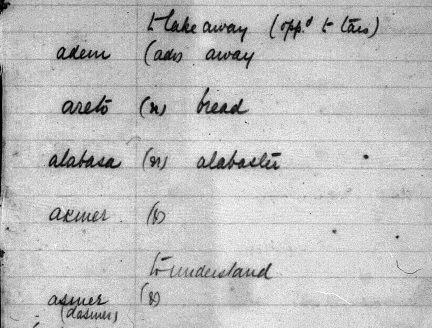 to take away (opp.d to tars)
adem (adv away
areto (n) bread
alabasa (n) alabaster
axmer (v)
to understand
asmer (v)
(dasmer)